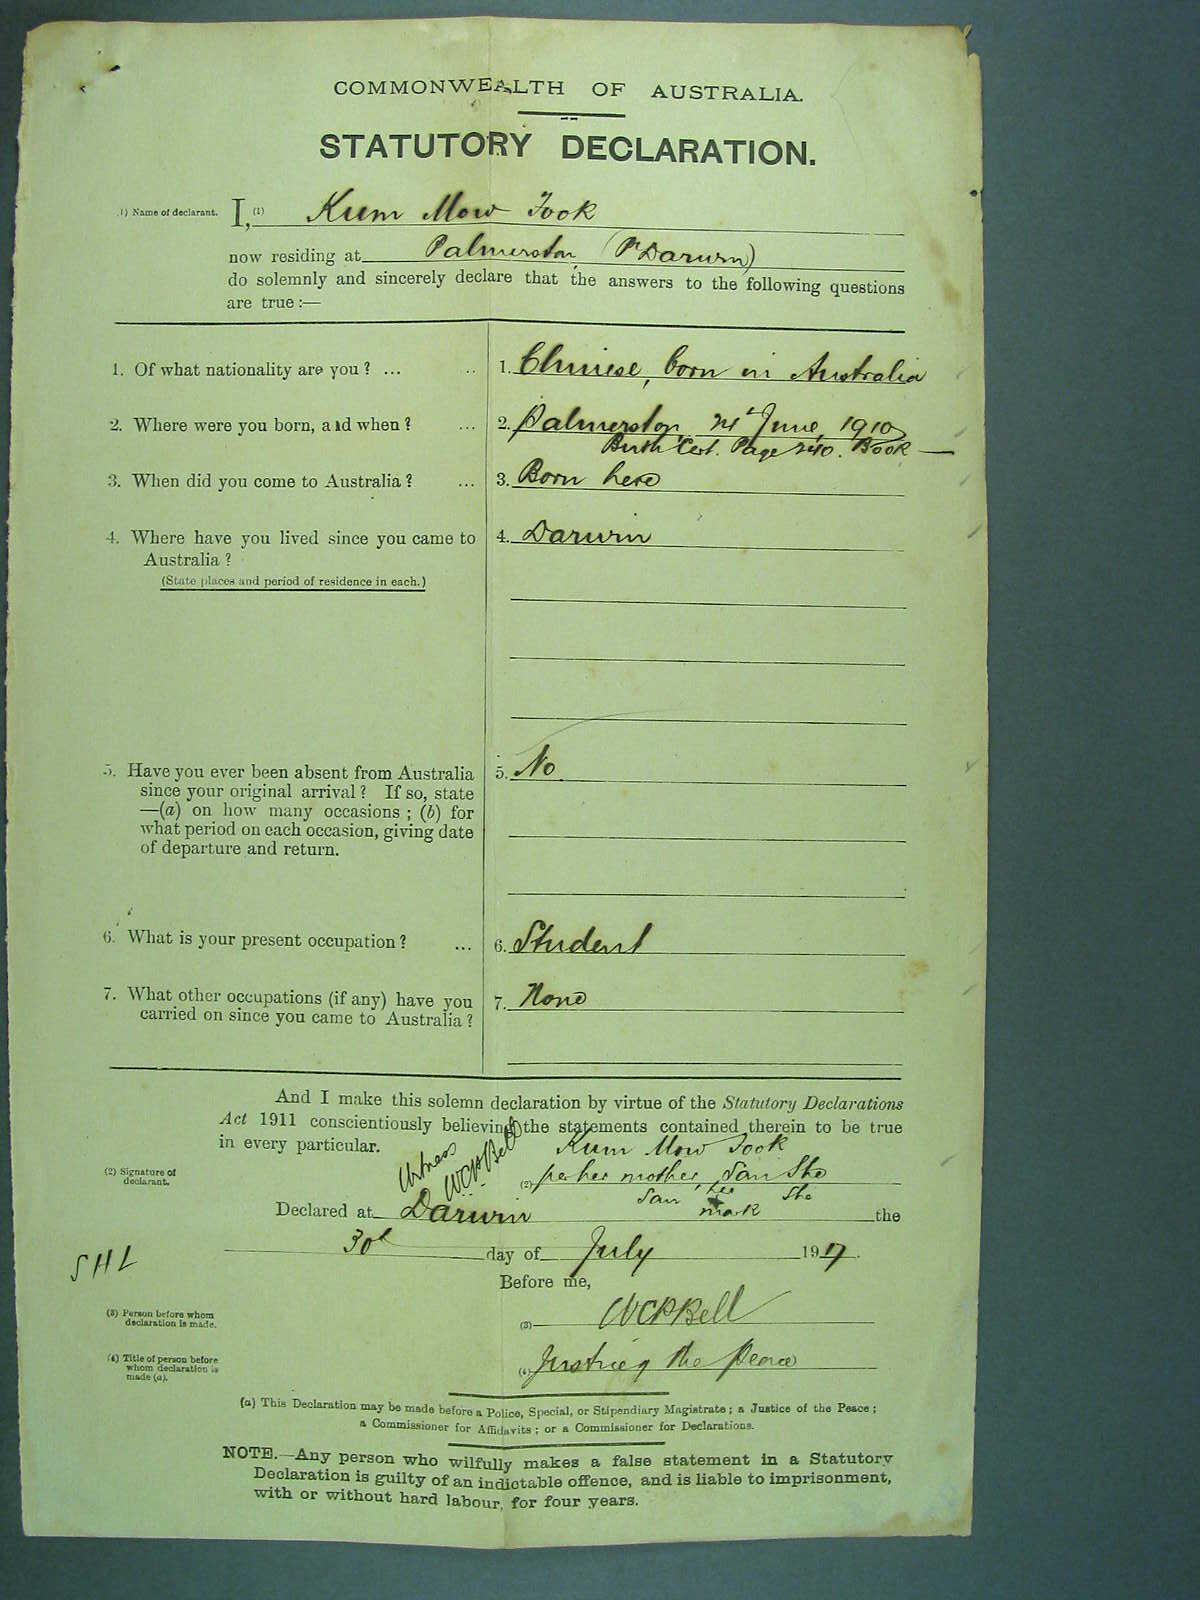 COMMONWEALTH OF AUSTRALIA.
STATUTORY DECLARATION.
(1) Name of declarant. I, (1) Kum Mow Fook
now residing at Palmerston (Pt Darwin)
do solemnly and sincerely declare that the answers to the following questions
are true :—
1. Of what nationality are you ? ... .. 1. Chinese, born in Australia
2. Where were you born, and when ? ... 2. Palmerston, 21st June, 1910
Birth Cert. Page 240. Book —
3. When did you come to Australia ? ... 3. Born here
4. Where have you lived since you came to 4. Darwin
Australia ?
(State places and period of residence in each.)
5. Have you ever been absent from Australia 5. No
since your original arrival ? If so, state
—(a) on how many occasions ; (b) for
what period on each occasion, giving date
of departure and return.
6. What is your present occupation ? ... 6. Student
7. What other occupations (if any) have you 7. None
carried on since you came to Australia ?
And I make this solemn declaration by virtue of the Statutory Declarations
Act 1911 conscientiously believing the statements contained therein to be true
in every particular.
Witness
WCPBell
Kum Mow Fook
(2) Signature of declarant. (2) per her mother, San She
San her She
mark
Declared at Darwin the
30th day of July 1917.
SHL
Before me,
(3) Person before whom
declaration is made.
(3) WCPBell
(4) Title of person before
whom declaration is
made (a).
(4) Justice of the Peace
(a) This Declaration may be made before a Police, Special, or Stipendiary Magistrate ; a Justice of the Peace ;
a Commissioner for Affidavits ; or a Commissioner for Declarations.
NOTE.—Any person who wilfully makes a false statement in a Statutory
Declaration is guilty of an indictable offence, and is liable to imprisonment,
with or without hard labour, for four years.